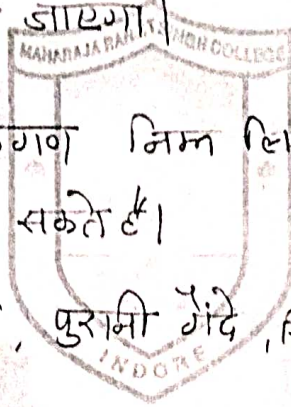 जाएगा।
MAHARAJA RANJIT SINGH COLLEGE
गण निम्न
सकते हैं।
, पुरानी गेंदे ,
INDORE